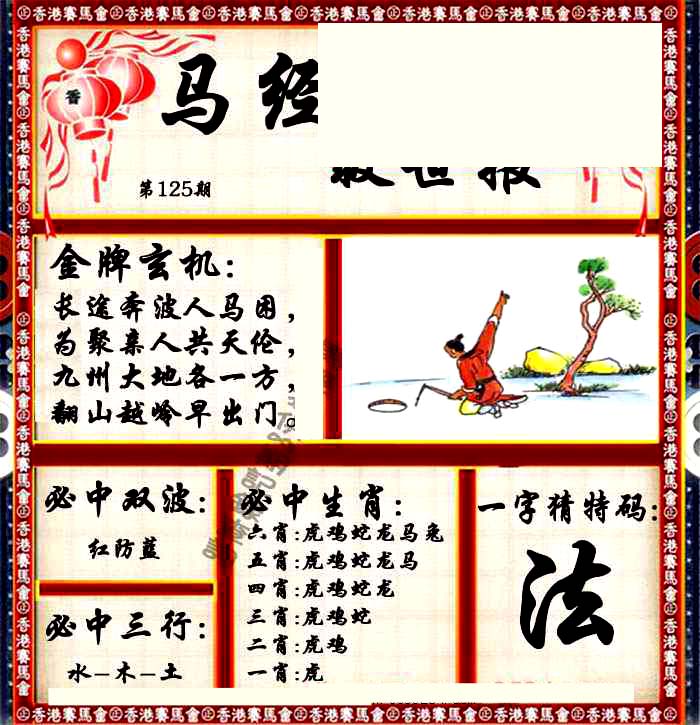 ㊣香港賽馬會㊣香港賽馬會㊣香港賽馬會㊣香港賽馬會㊣香港賽馬會㊣香港賽馬會㊣香港賽馬會㊣
香
马经
救世报
第125期
金牌玄机：
长途奔波人马困，
为聚亲人共天伦，
九州大地各一方，
翻山越岭早出门。
必中双波：
红防蓝
必中三行：
水-木-土
必中生肖：
六肖:虎鸡蛇龙马兔
五肖:虎鸡蛇龙马
四肖:虎鸡蛇龙
三肖:虎鸡蛇
二肖:虎鸡
一肖:虎
一字猜特码：
法
㊣香港賽馬會㊣香港賽馬會㊣香港賽馬會㊣香港賽馬會㊣香港賽馬會㊣香港賽馬會㊣香港賽馬會㊣